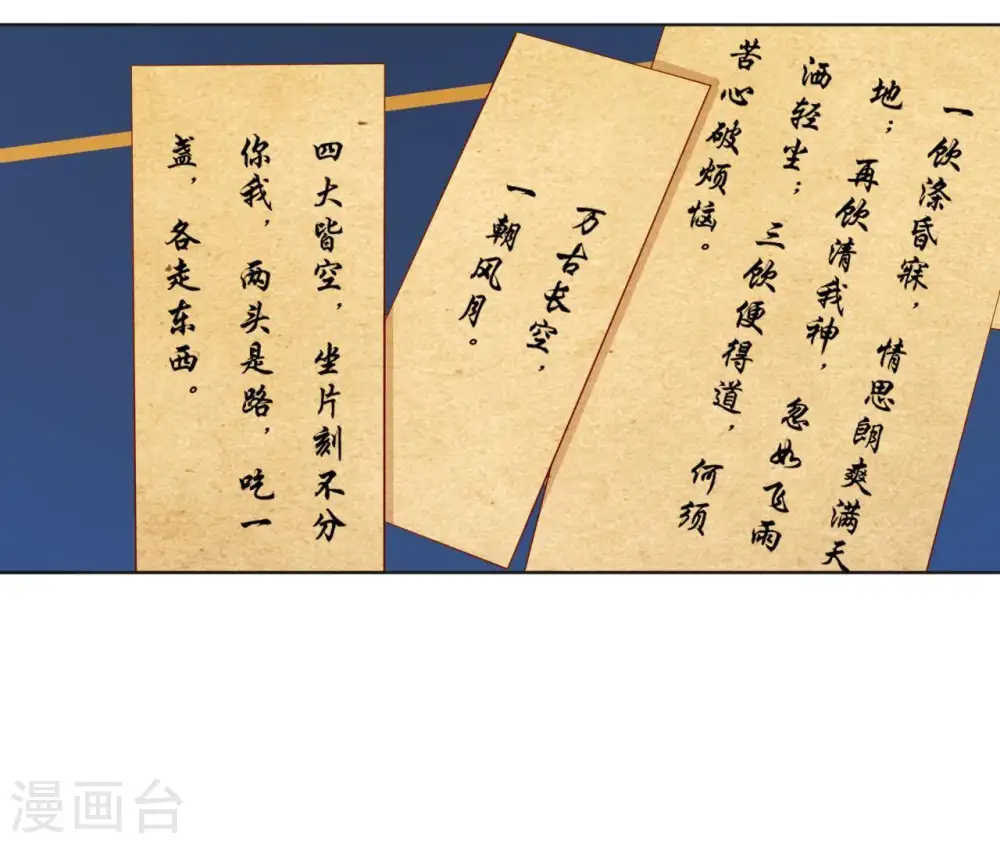 一饮涤昏寐，情思朗爽满天
地；再饮清我神，忽如飞雨
洒轻尘；三饮便得道，何须
苦心破烦恼。
万古长空，
一朝风月。
四大皆空，坐片刻不分
你我，两头是路，吃一
盏，各走东西。
漫画台